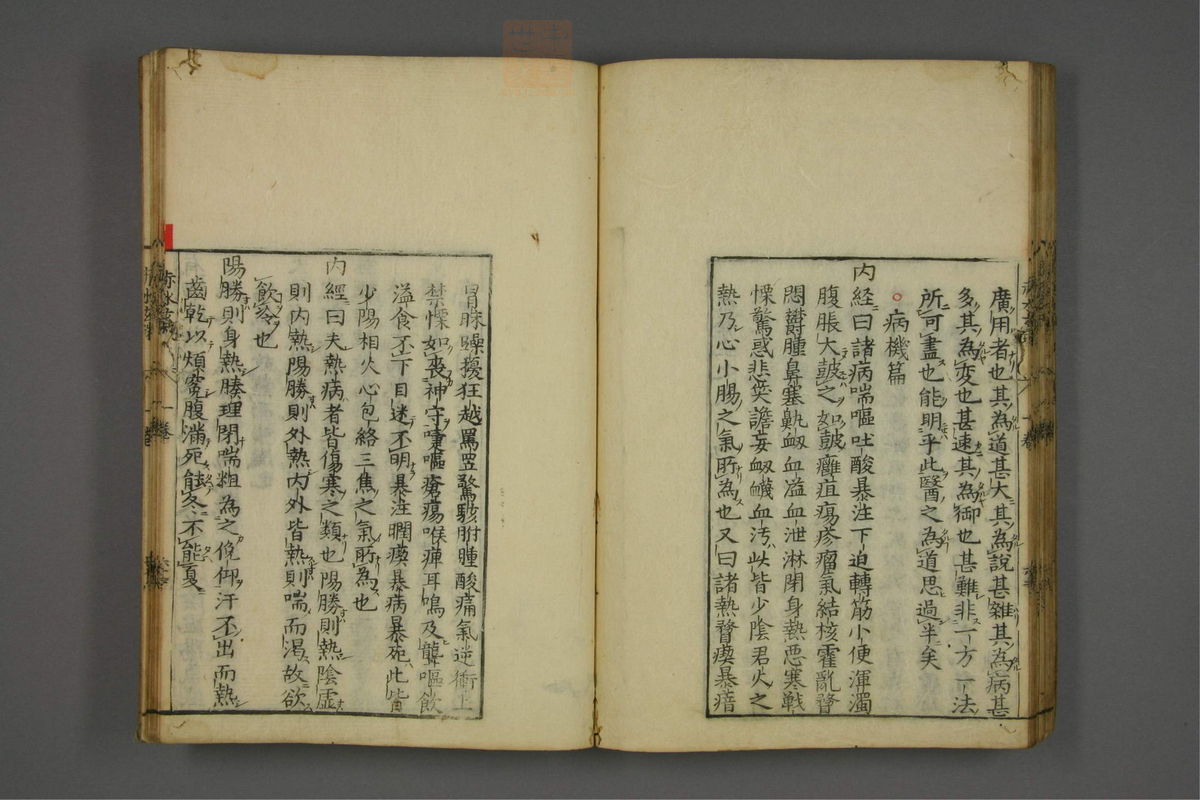 廣用者也其為道甚大其為說甚雜其為病甚
多其為変也甚速其為御也甚難非一方一法
所可盡也能明乎此醫之為道思過半矣
病機篇
内経曰諸病喘嘔吐酸暴注下迫轉筋小便渾濁
腹脹大皷之如皷癰疽瘍疹瘤氣結核霍亂瞀
悶欝腫鼻塞鼽衂血溢血泄淋閉身熱悪寒戦
慄驚惑悲笑譫妄衂衊血汚此皆少陰君火之
熱乃心小腸之氣所為也又曰諸熱瞀瘈暴瘖
冒昧躁擾狂越罵詈驚駭胕腫酸痛氣逆衝上
禁慄如喪神守嚏嘔瘡瘍喉痺耳鳴及聾嘔飲
溢食不下目迷不明暴注瞤瘈暴病暴死此皆
少陽相火心包絡三焦之氣所為也
内經曰夫熱病者皆傷寒之類也陽勝則熱陰虚
則内熱陽勝則外熱内外皆熱則喘而渴故欲
飲冷也
陽勝則身熱腠理閉喘粗為之俛仰汗不出而熱
齒乾以煩寃腹滿死能冬不能夏